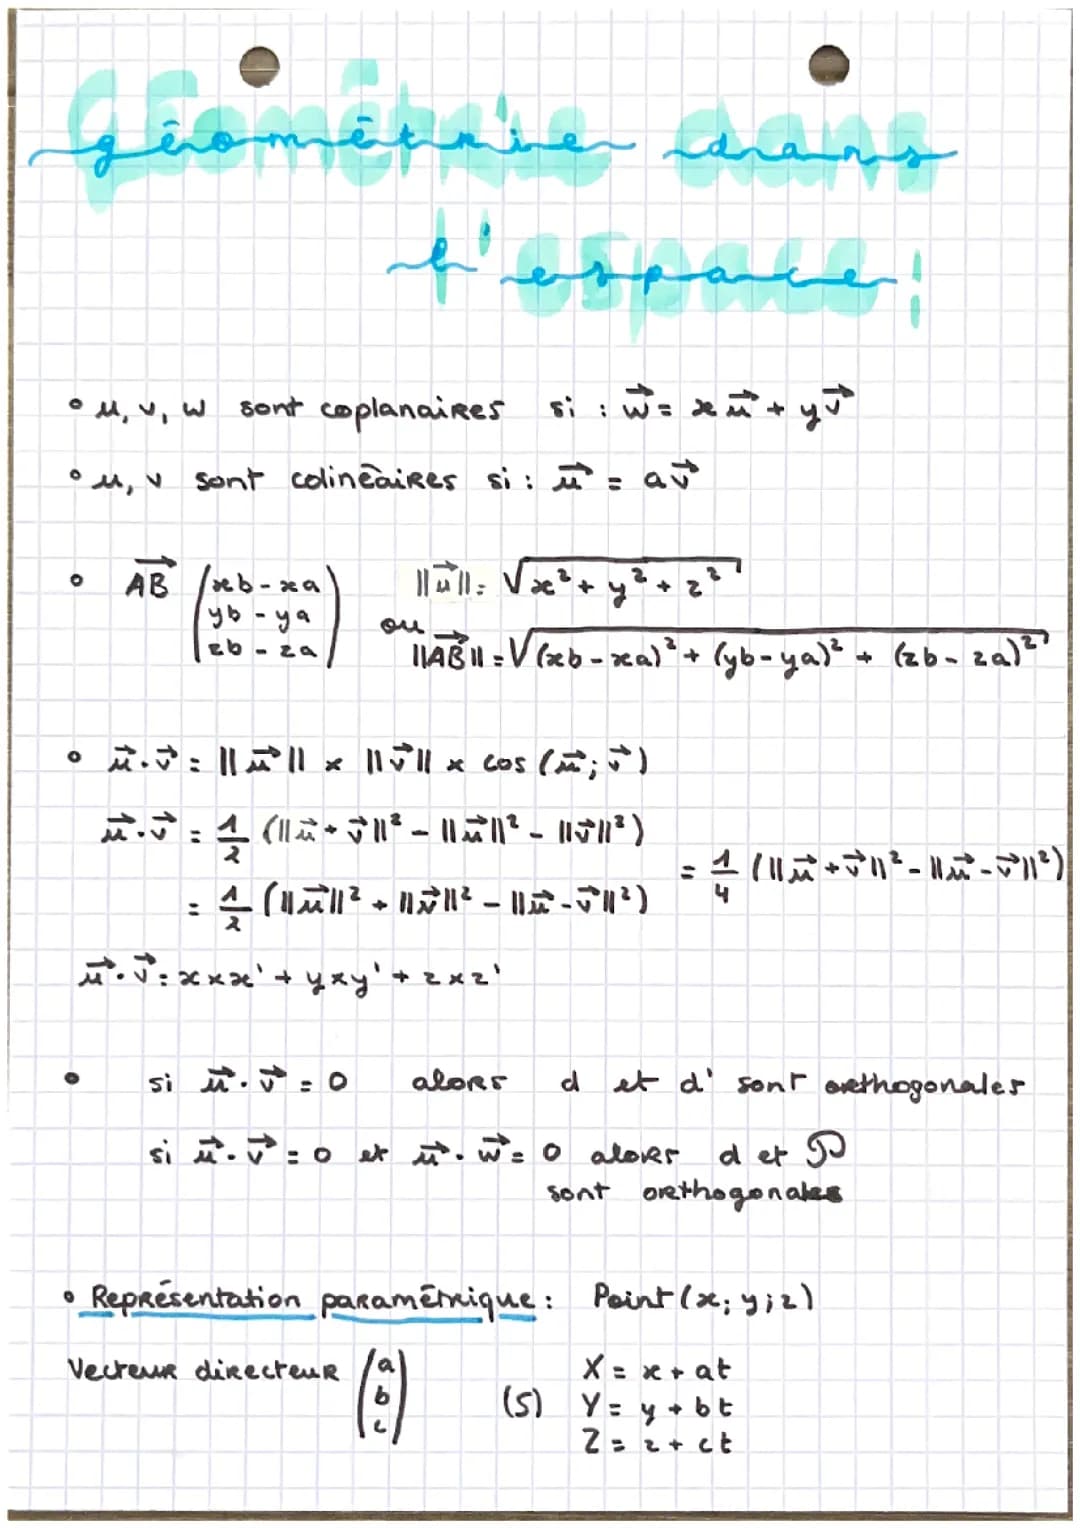 géométrie dans
l'espace :
• u, v, w sont coplanaires si : w⃗ = x u⃗ + y v⃗
• u, v sont colinéaires si : u⃗ = a v⃗
• AB⃗ (xb - xa ; yb - ya ; zb - za) ||u⃗|| = √(x² + y² + z²)
ou
||AB⃗|| = √((xb - xa)² + (yb - ya)² + (zb - za)²)
• u⃗ . v⃗ = ||u⃗|| × ||v⃗|| × cos (u⃗ ; v⃗)
u⃗ . v⃗ = 1/2 (||u⃗ + v⃗||² - ||u⃗||² - ||v⃗||²)
= 1/2 (||u⃗||² + ||v⃗||² - ||u⃗ - v⃗||²) = 1/4 (||u⃗ + v⃗||² - ||u⃗ - v⃗||²)
u⃗ . v⃗ = x × x' + y × y' + z × z'
• si u⃗ . v⃗ = 0 alors d et d' sont orthogonales
si u⃗ . v⃗ = 0 et u⃗ . w⃗ = 0 alors d et P
sont orthogonales
• Représentation paramétrique : Point (x ; y ; z)
Vecteur directeur (a ; b ; c)
X = x + at
(S) Y = y + bt
Z = z + ct